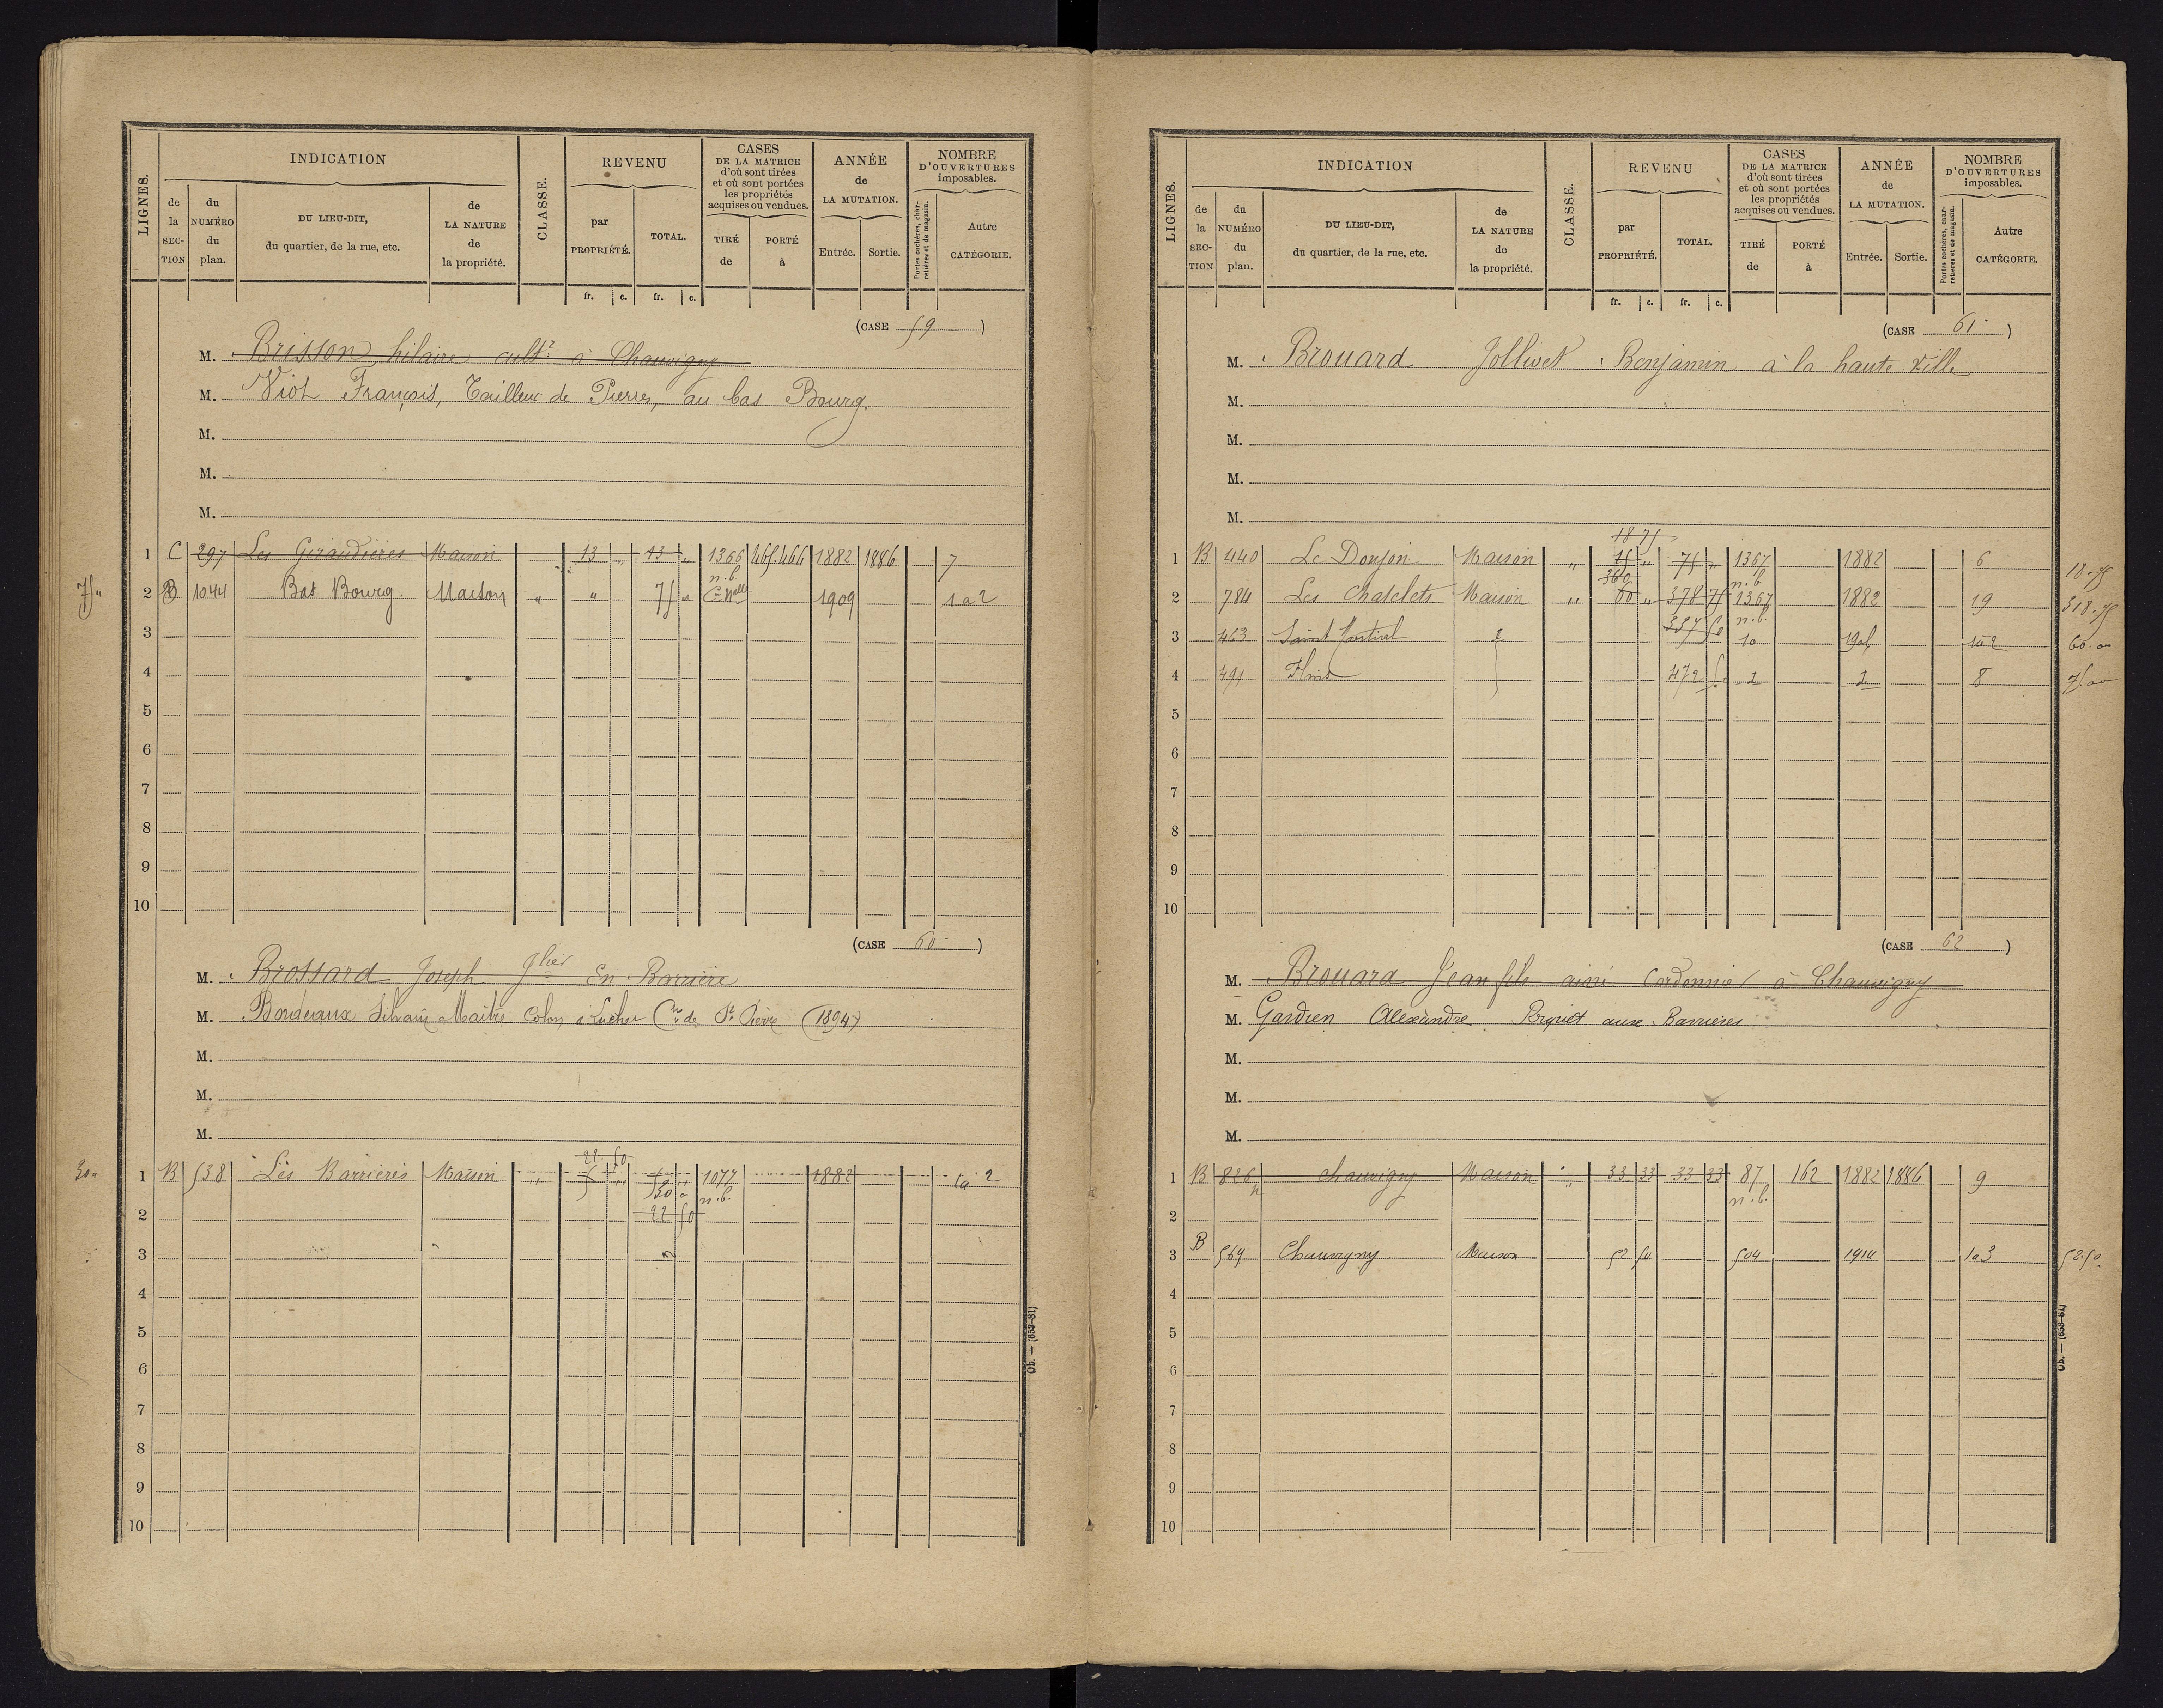 LIGNES. INDICATION CLASSE. REVENU CASES DE LA MATRICE d'où sont tirées et où sont portées les propriétés acquises ou vendues. ANNÉE de LA MUTATION. NOMBRE D'OUVERTURES imposables.
de la SEC-TION du NUMÉRO du plan. DU LIEU-DIT, du quartier, de la rue, etc. de LA NATURE de la propriété. par PROPRIÉTÉ. TOTAL. TIRÉ de PORTÉ à Entrée. Sortie. Portes cochères, char-retières et de magasin. Autre CATÉGORIE.
fr. c. fr. c.
(CASE 59)
M. Brisson hilaire cultr à Chauvigny
M. Viot François, Tailleur de Pierres, au bas Bourg.
M.
M.
M.
1 C 297 Les Giraudières Maison 13 " 13 " 1366 465.466 1882 1886 7
n.b.
75 " 2 B 1044 Bas Bourg. Maison " " 75 " Con Nelle 1909 1 à 2
3
4
5
6
7
8
9
10
(CASE 60)
M. Brossard Joseph Jlier En Barrière
M. Bordeaux Silvain Maitre Colon à Cne de St Pierre (1894)
M.
M.
M.
22 50
30 " 1 B 538 Les Barrières Maison " 5 " 5 " 1077 1882 1 à 2
30 " n.b.
2 22 50
3
4
5
6
7
8
9
10
Ob. — (653-81)
LIGNES. INDICATION CLASSE. REVENU CASES DE LA MATRICE d'où sont tirées et où sont portées les propriétés acquises ou vendues. ANNÉE de LA MUTATION. NOMBRE D'OUVERTURES imposables.
de la SEC-TION du NUMÉRO du plan. DU LIEU-DIT, du quartier, de la rue, etc. de LA NATURE de la propriété. par PROPRIÉTÉ. TOTAL. TIRÉ de PORTÉ à Entrée. Sortie. Portes cochères, char-retières et de magasin. Autre CATÉGORIE.
fr. c. fr. c.
(CASE 61)
M. Brouard Jollivet Benjamin à la haute Ville
M.
M.
M.
M.
18 75
1 B 440 Le Donjon Maison " 15 " 75 " 1367 1882 6 18.75
360 n.b.
2 784 Les Chatelets Maison " 60 " 378 75 1367 1882 19 318.75
337 50 n.b.
3 463 Saint 10 1 à 2 60.00
4 491 472 5 8 75.00
5
6
7
8
9
10
(CASE 62)
M. Brouard Jean fils ainé Cordonnier à Chauvigny
M. Gardien Alexandre Piquet aux Barrières
M.
M.
M.
1 B 826 p chauvigny Maison " 33 33 33 33 87 162 1882 1886 9
n.b.
2
3 B 569 Chauvigny Maison 52 50 504 1914 1 à 3 52.50
4
5
6
7
8
9
10
Ob. — (653-81)